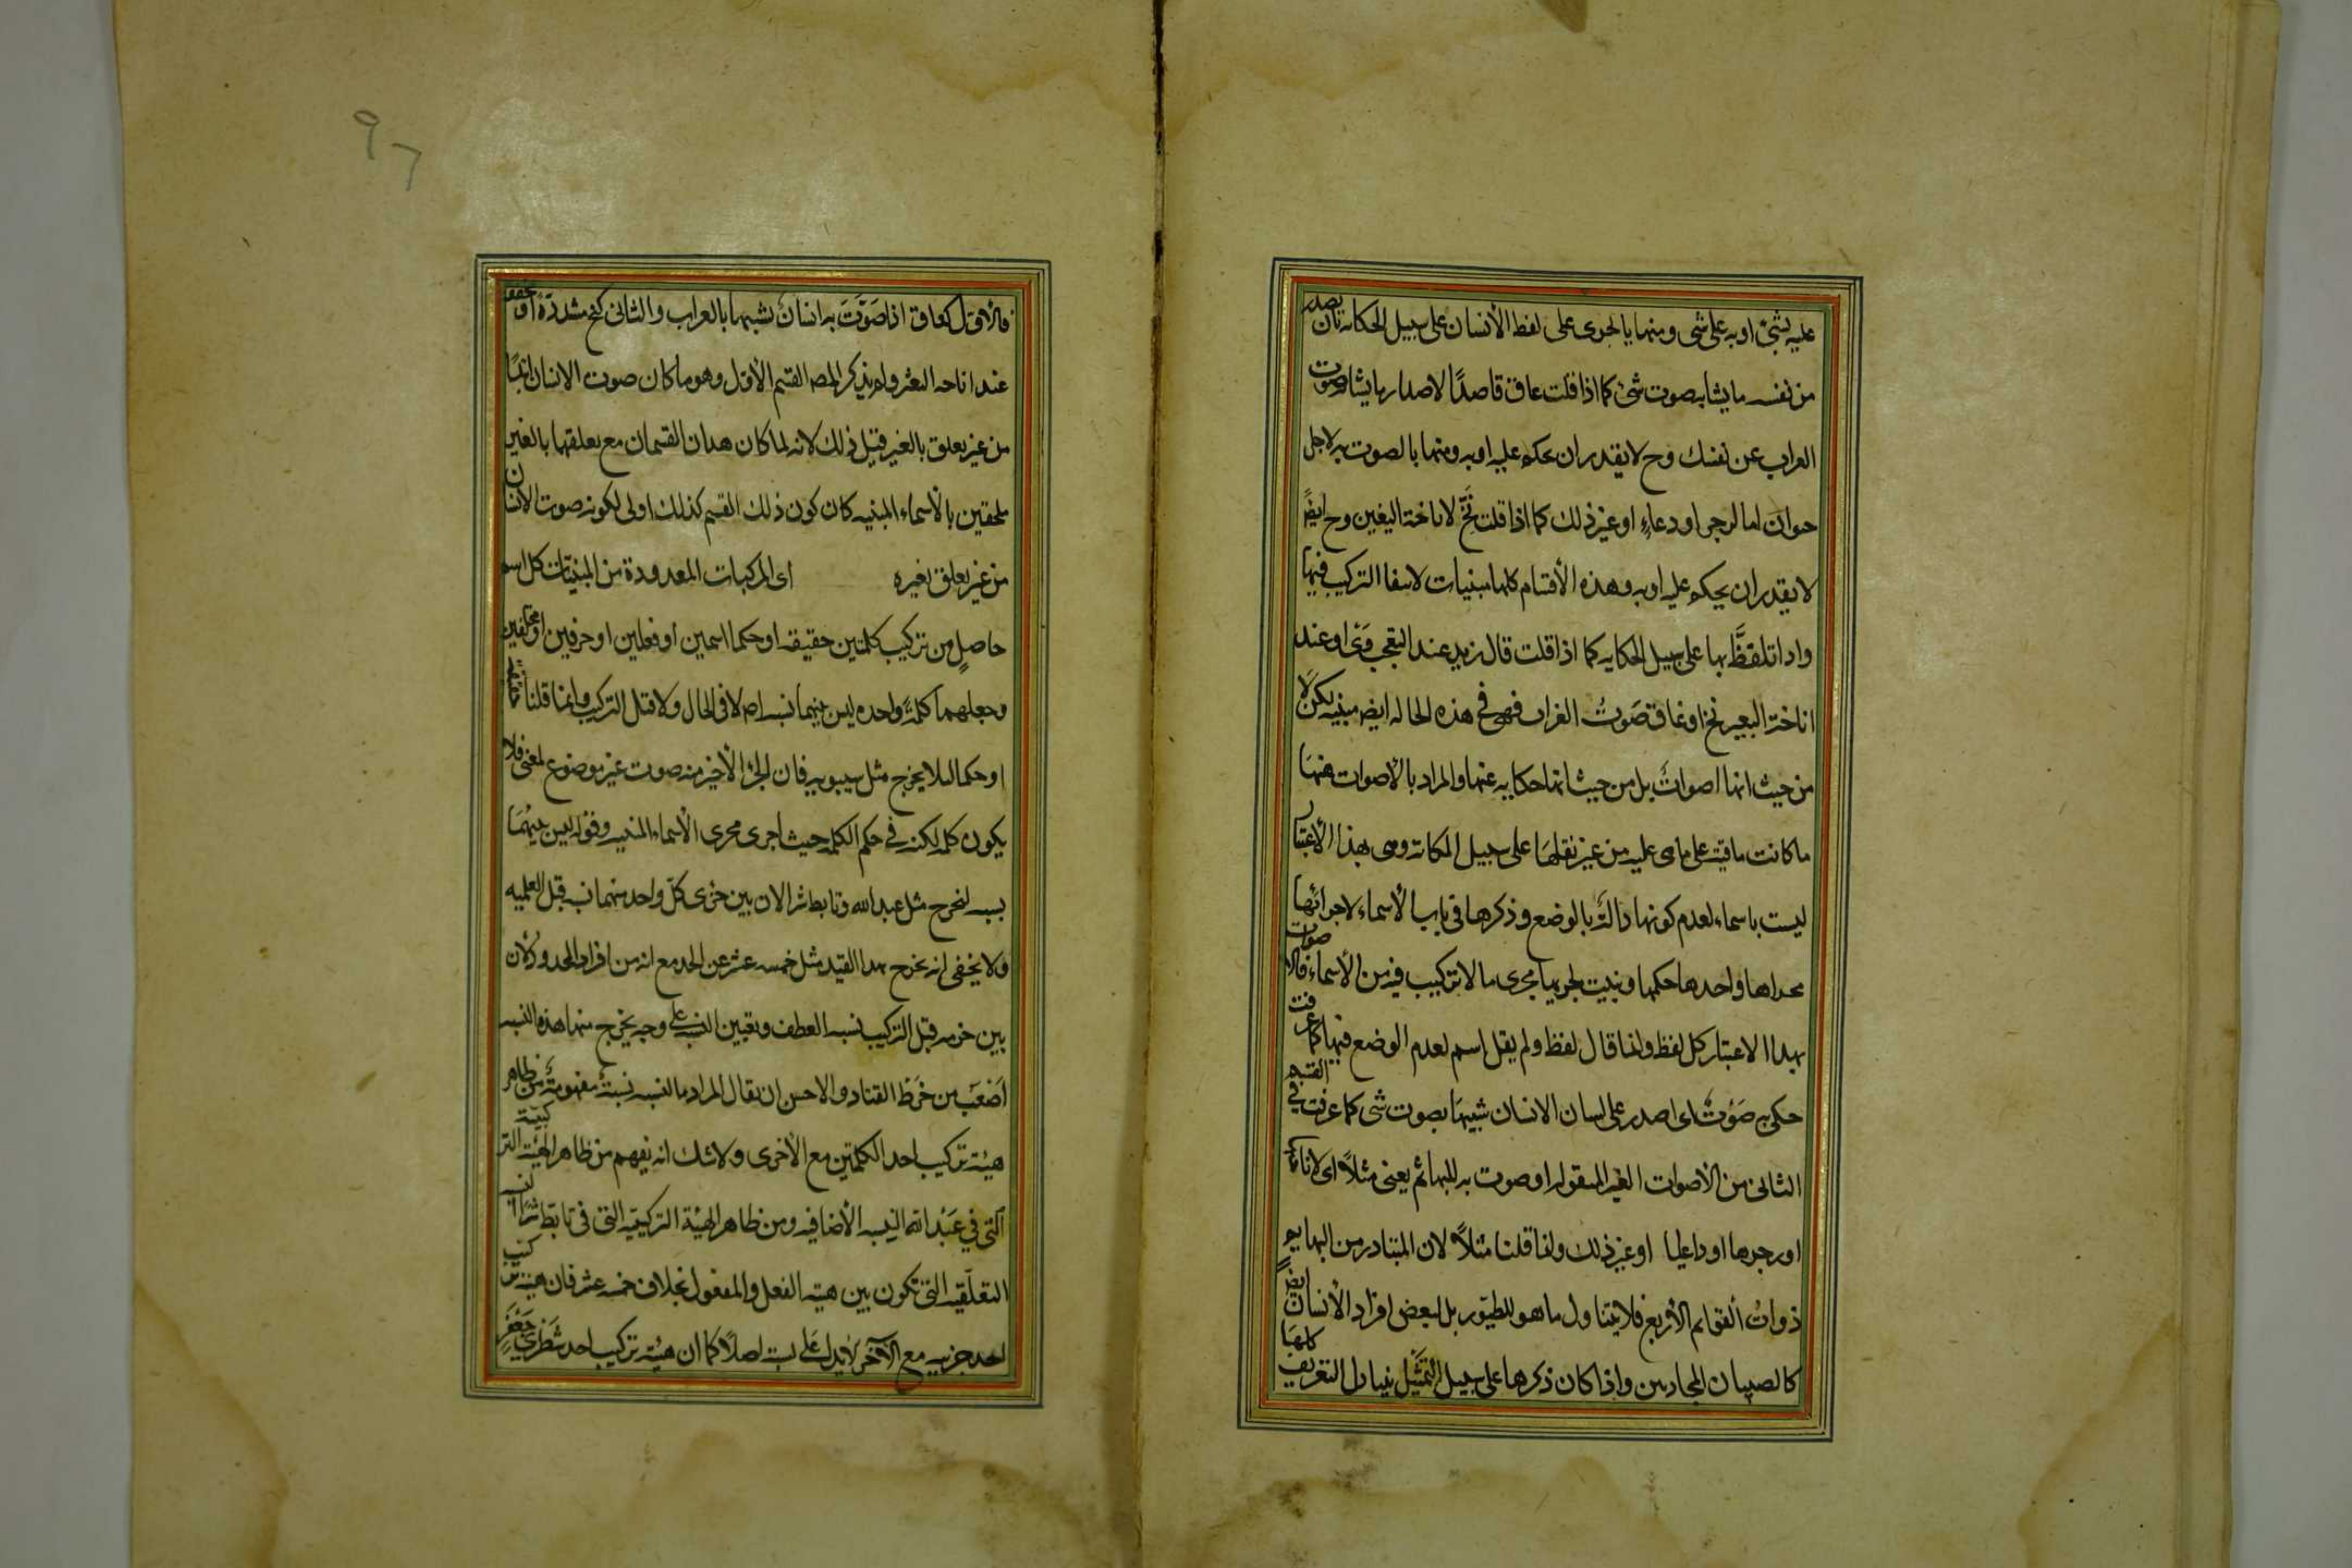 عليه بشئ او به على شى ومنها يا لجرى على لفظ الأنسان على سبيل الحكاية بان يصدر
من نفسه ما يشابه صوت شئ كما اذا قلت عاق قاصدًا لاصدار ما يشابه صوت
الغراب عن نفسك وح لا يقدر ان يحكم عليه او به ومنها بالصوت به لاجل
حوان اما لزجر او دعاءٍ او غير ذلك كما اذا قلت نَخّ لاناخة البعير وح ايضً
لا يقدر ان يحكم عليه او به وهذه الأقسام كلها مبنيات لانتفا التركيب فيها
واذا تلفظَّ بها على سبيل الحكايه كما اذا قلت قال زيد عند التعجب وَىْ او عند
اناخة البعير نخ او غاق صَوتُ الغراب فهى فى هذه الحاله ايض مبنيه لكن لا
من حيث انها اصواتٌ بل من حيث انها حكايه عنها والمراد بالأصوات هنهَا
ما كانت باقية على ما هى عليه من غير نقلهَا على سبيل الحكاية وهى بهذا الأعتبار
ليست باسماء لعدم كونها دالةً بالوضع وذكرها فى باب الأسماء لاجرائها
مجراها واخذها حكمها وبنيت لجريها مجرى ما لا تركيب فيه من الأسماء فالاصوات
بهذا الاعتبار كل لفظ وانما قال لفظ ولم يقل اسم لعدم الوضع فيها كما عرفت
حكى به صَوْتٌ اى اصدر على لسان الانسان شبيهَا بصوت شى كما عرفت فى القسم
الثانى من الأصوات الغير المنقوله او صوت به للبهائم يعنى مثلاً اى لاناختها
او زجرها او دعائها او غير ذلك وانما قلنا مثلاً لان المتبادر من البهايم
ذواتُ ألقوايم الأربع فلا يتناول ما هو للطيور بل لبعض افراد الأنسان ايضً
كالصبيان المجانين واذا كان ذكرها على سبيل التمثيل يتناول التعريف كلها
فالأوّل كغاق اذا صَوَّتَ به انسانٌ تشبيها بالغراب والثانى كنخ مشددةً او مخففة
عند اناخه البعير ولم يذكر المصـ القسم الأوّل وهو ما كان صوت الانسان ابتداءً
من غير تعلق بالغير قيل ذلك لانه لما كان هذان القسمان مع تعلقهما بالغير
ملحقين بالأسماء المبنيه كان كون ذلك القسم كذلك اولى لكونه صوت الانسان
من غير تعلق بغيره اى المركبات المعدودة من المبنيّات كل اسم
حاصلٍ من تركيب كلمتين حقيقه او حكما اسمين او فعلين او حرفين او مختلفين
وجعلهما كلمةً واحده ليس بينهما نسبه اصلا لا فى الحال ولا قبل التركيب وانما قلنا حقيقه
او حكما لئلا يخرج مثل سيبويه فان الجزء الأخير منه صوت غير موضوع لمعنى فلا
يكون كلمه لكنه فى حكم الكلمه حيث اجرى مجرى الأسماء المبنيه وقوله ليس بينهُمَا
نسبه ليخرج مثل عبد الله وتابط شرا لان بين جزئى كلّ واحد منهما نسبه قبل العلميه
ولا يخفى انه يخرج بهذا القيد مثل خمسه عشر عن الحد مع انه من افراد المحدود لأن
بين جزءيه قبل التركيب نسبه العطف وتعيين النسبه على وجه يخرج منها هذه النسبه
اَصْعَبُ من خَرْط القتاد والاحسن ان يقال المراد بالنسبه نسبةٌ مفهومةٌ من ظاهر
هيئة تركيب احد الكلمتين مع الأخرى ولا شك انه يفهم من ظاهر الهيئة التركيبيّة
التى فى عبْد الله النسبه الأضافيه ومن ظاهر الهيئة التركيبيه التى فى تابّط شرًّا النسبه
التعلّقيه التى تكون بين هيته الفعل والمفعول بخلاف خمسه عشر فان هيئة تركيب
احد جزئيه مع الآخر لا يدل على نسبه اصلاً كما ان هيئة تركيب احد شطْرى جَعْفَرٍ